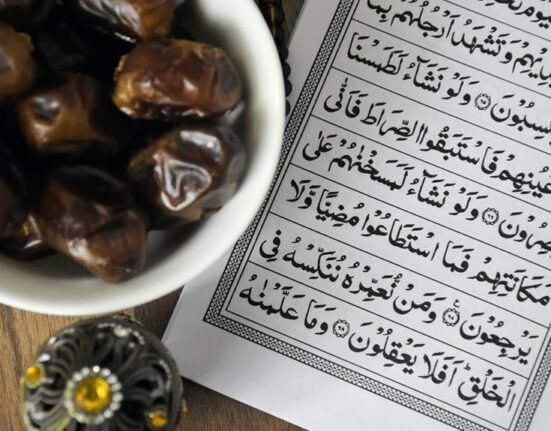 دِيْهِمْ وَتَشْهَدُ اَرْجُلُهُمْ بِمَا
سِبُوْنَ ﴿٦٥﴾ وَلَوْ نَشَآءُ لَطَمَسْنَا
عْيُنِهِمْ فَاسْتَبَقُوا الصِّرَاطَ فَاَنّٰى
صِرُوْنَ ﴿٦٦﴾ وَلَوْ نَشَآءُ لَمَسَخْنٰهُمْ عَلٰى
مَكَانَتِهِمْ فَمَا اسْتَطَاعُوْا مُضِيًّا وَّلَا
يَرْجِعُوْنَ ﴿٦٧﴾ وَمَنْ نُّعَمِّرْهُ نُنَكِّسْهُ فِى
الْخَلْقِ ؕ اَفَلَا يَعْقِلُوْنَ ﴿٦٨﴾ وَمَا عَلَّمْنٰهُ